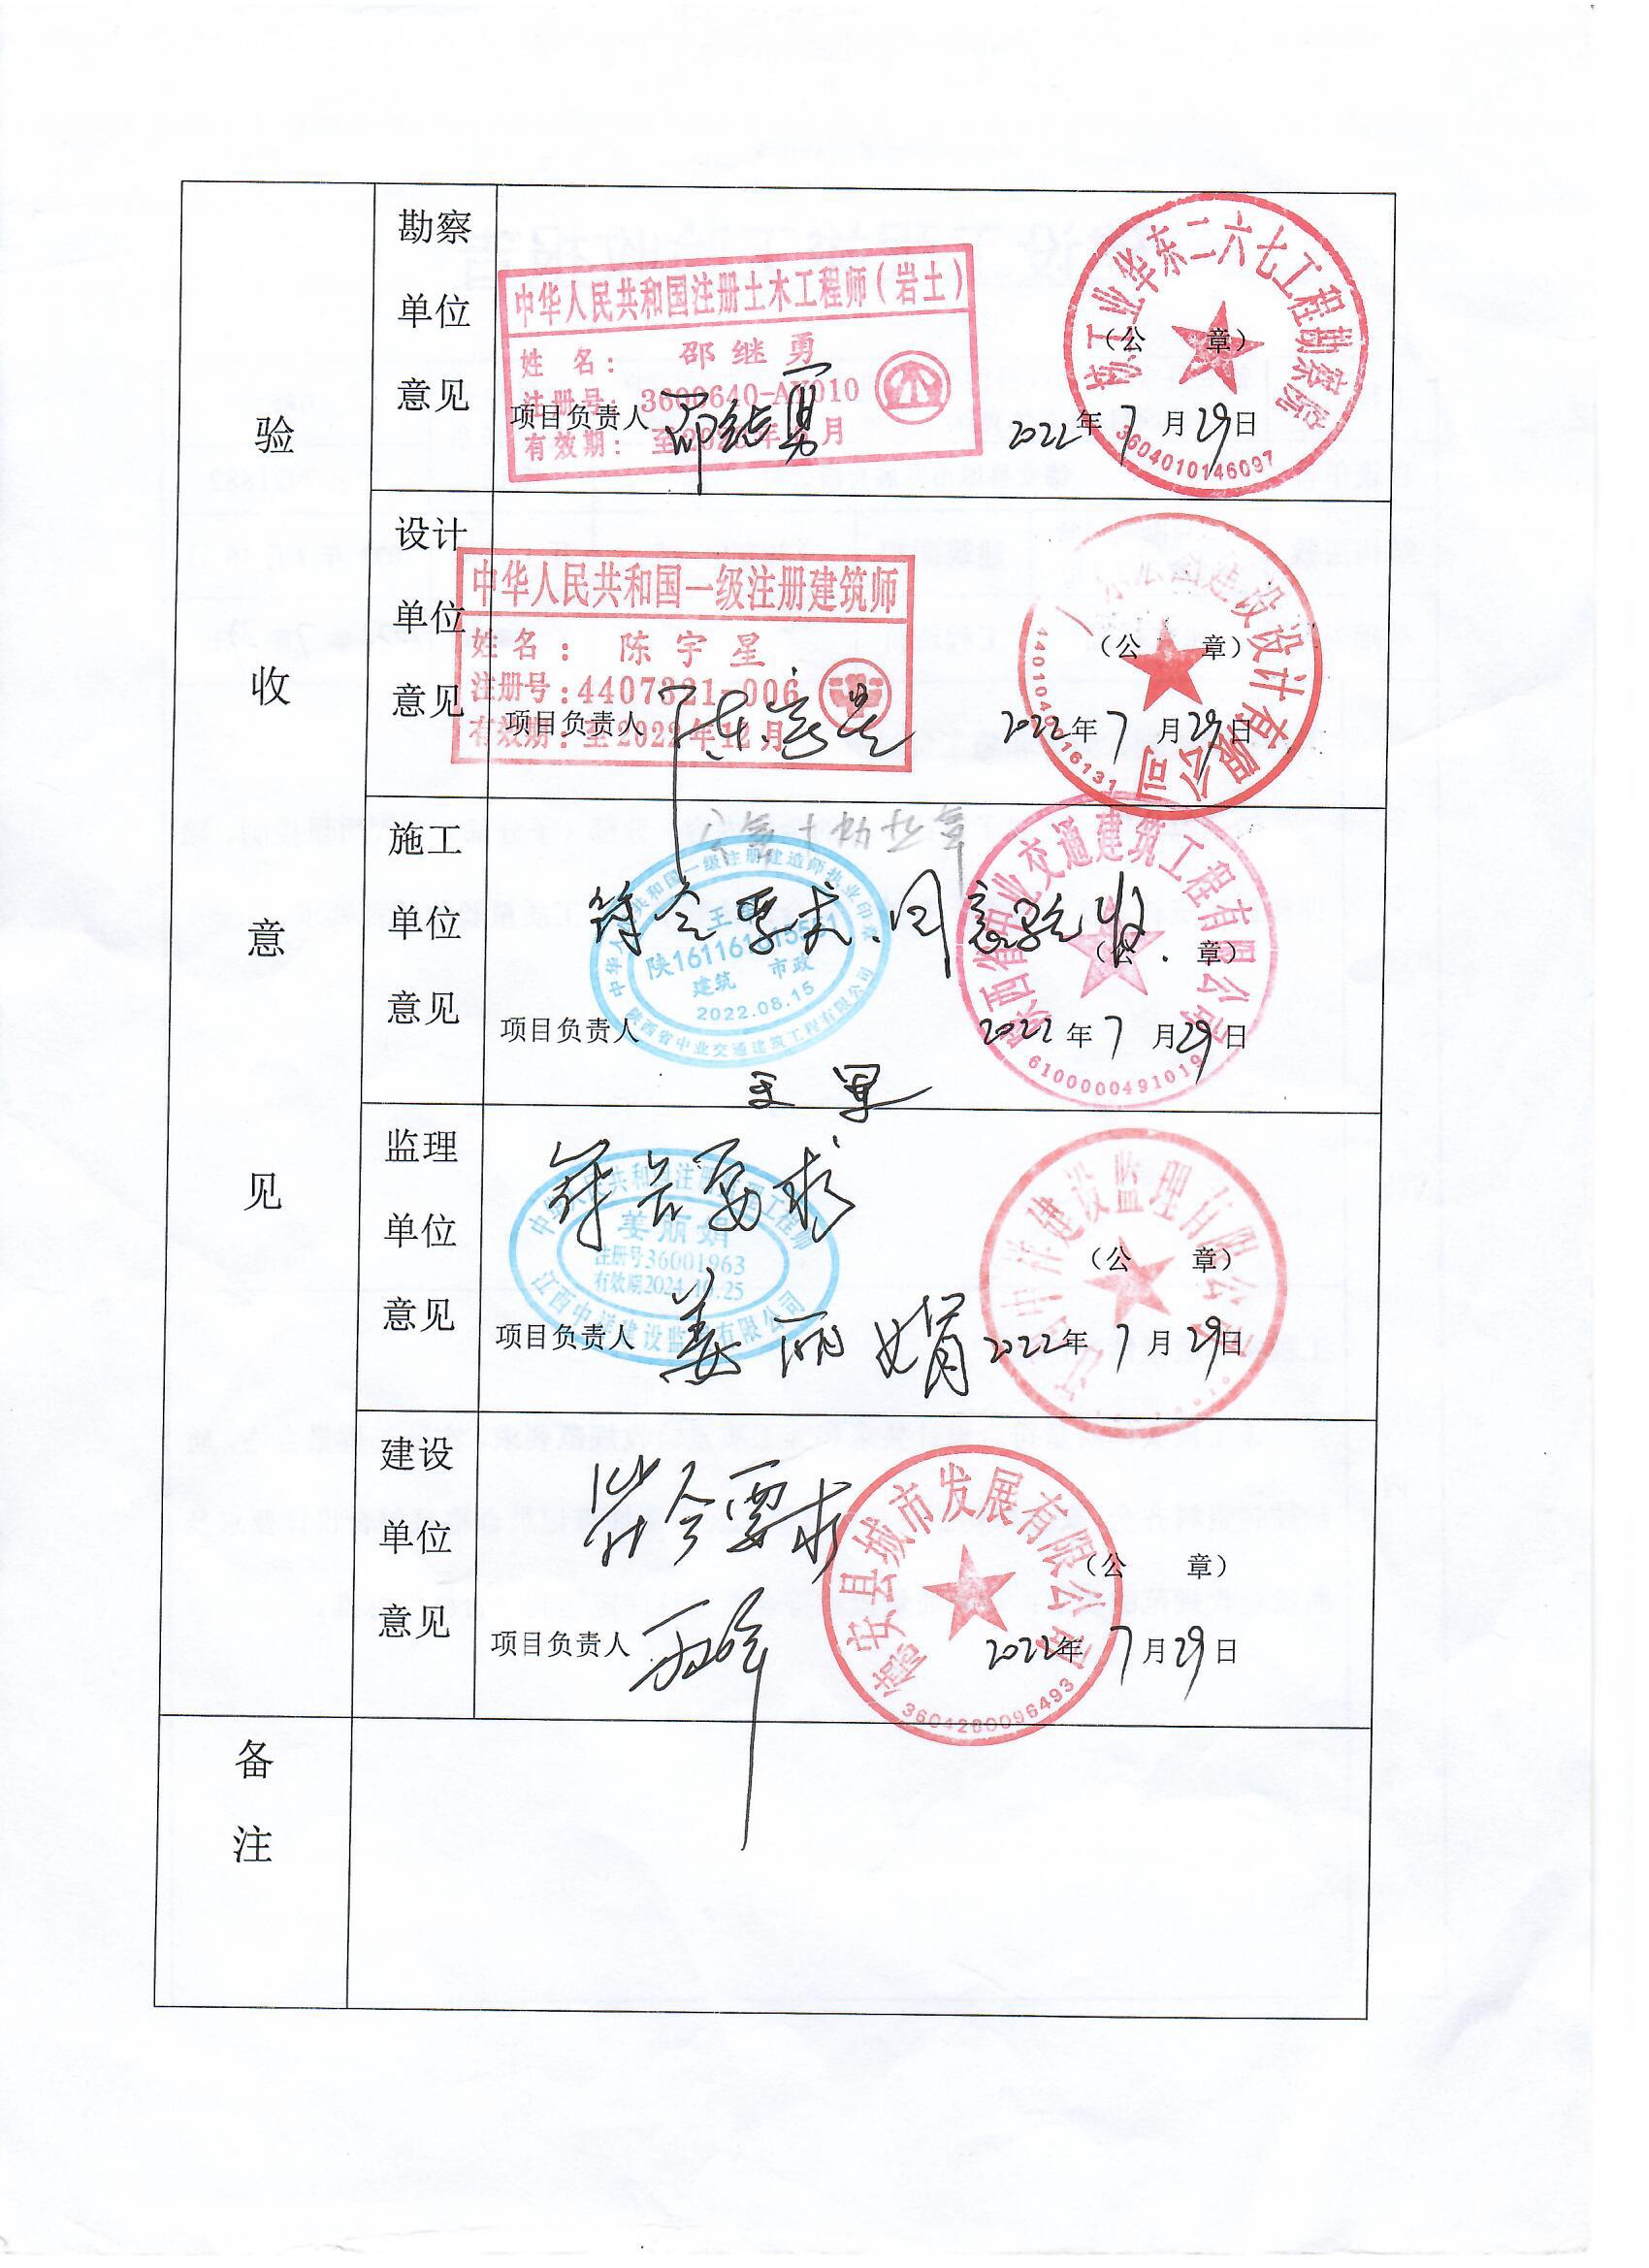 验收意见
勘察单位意见
中华人民共和国注册土木工程师（岩土）
姓 名： 邵继勇
注册号：3600640-AY010
有效期：至
项目负责人 邵继勇
核工业华东二六七工程勘察院
（公 章）
3604010146097
2022年7月29日
设计单位意见
中华人民共和国一级注册建筑师
姓名：陈宇星
注册号：4407321-006
有效期：至2022年12月
项目负责人 陈宇星
建设设计有限公司
（公 章）
2022年7月29日
施工单位意见
符合要求、同意验收.
中华人民共和国一级注册建造师执业印章
建筑 市政
2022.08.15
陕西省中业交通建筑工程有限公司
项目负责人
陕西省中业交通建筑工程有限公司
（公 章）
6100000491019
2022年7月29日
监理单位意见
符合要求
中华人民共和国注册监理工程师
姜丽娟
注册号36001963
江西中祥建设监理有限公司
项目负责人 姜丽娟
江西中祥建设监理有限公司
（公 章）
2022年7月29日
建设单位意见
符合要求
项目负责人
德安县城市发展有限公司
（公 章）
3604260096493
2022年7月29日
备注